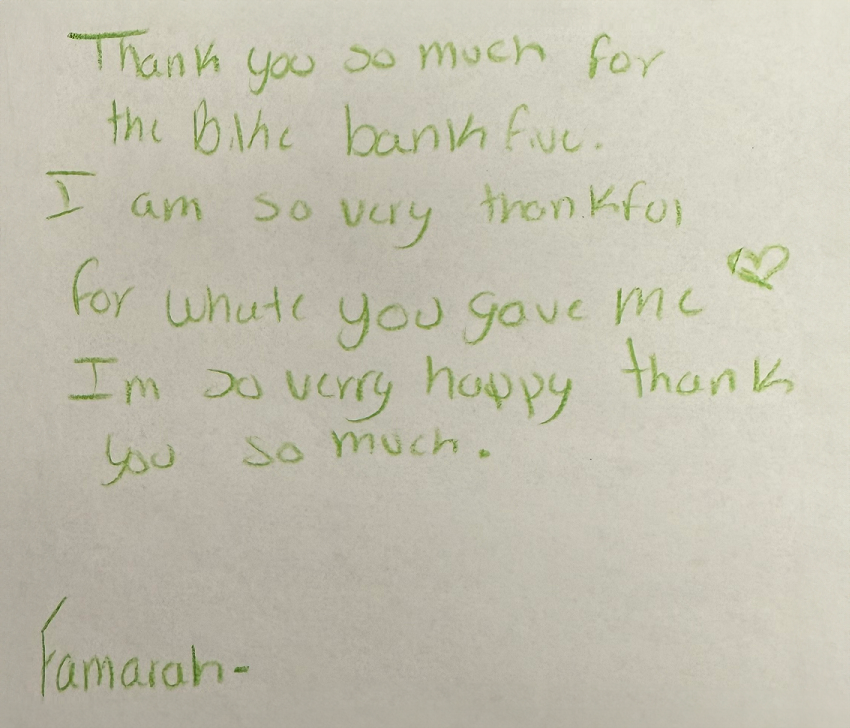 Thank you so much for
the Bike bank five.
I am so very thankful
for whate you gave me
Im so verry happy thank
you so much.
Famarah-